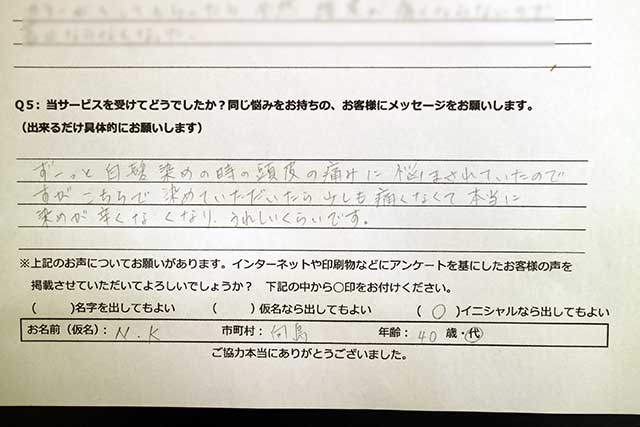 Q5：当サービスを受けてどうでしたか？同じ悩みをお持ちの、お客様にメッセージをお願いします。
（出来るだけ具体的にお願いします）
ずーっと白髪染めの時の頭皮の痛みに悩まされていたので
すがこちらで染めていただいたら少しも痛くなくて本当に
染めが辛くなくなり、うれしいくらいです。
※上記のお声についてお願いがあります。インターネットや印刷物などにアンケートを基にしたお客様の声を
掲載させていただいてよろしいでしょうか？　下記の中から○印をお付けください。
(　　)名字を出してもよい　(　　)仮名なら出してもよい　(　○　)イニシャルなら出してもよい
お名前（仮名）：N.K　市町村：向島　年齢：40 歳・代
ご協力本当にありがとうございました。